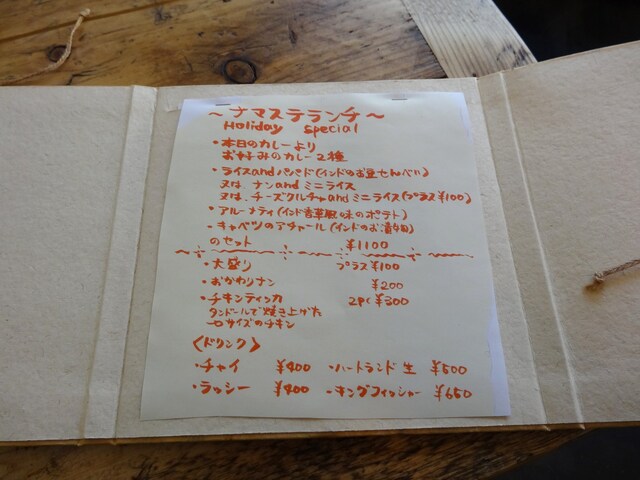 ～ナマステランチ～
Holiday special
・本日のカレーより
お好みのカレー2種
・ライスandパパド(インドのお豆せんべい)
又は ナンandミニライス
又は、チーズクルチャandミニライス(プラス¥100)
・アルーナティ(インド香草風味のポテト)
・キャベツのアチャール(インドのお漬物)
のセット ¥1100
・大盛り プラス¥100
・おかわりナン ¥200
・チキンティッカ 2pc ¥300
タンドールで焼き上げた
一口サイズのチキン
〈ドリンク〉
・チャイ ¥400 ・ハートランド生 ¥500
・ラッシー ¥400 ・キングフィッシャー ¥650